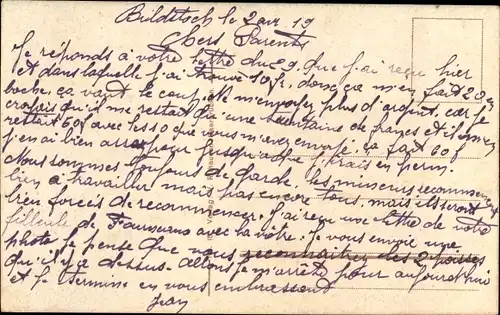 Bilditsch le 2 avr 19
Chers Parents
Je réponds à votre lettre du 29 que j'ai reçu hier
et dans laquelle j'ai trouvé 10 fr, donc ça m'en fait 20
boche, ça vaut le coup. Ne m'envoyez plus d'argent, car je
croyais qu'il me restait qu'une trentaine de francs et il m'en
restait 50f avec les 10 que vous m'avez envoyé, ça fait 60f
j'en ai bien assez pour jusqu'à que j'irais en perm.
Nous sommes toujours de garde. Les mineurs recommencent
bien à travailler mais pas encore tous, mais ils seront
bien forcés de recommencer. J'ai reçu une lettre de votre
filleule de avec la vôtre. Je vous envoie une
photo, je pense que vous reconnaîtrez les 2 gosses
qu'il y a dessus. Allons je m'arrête pour aujourd'hui
et je termine en vous embrassant
Jean